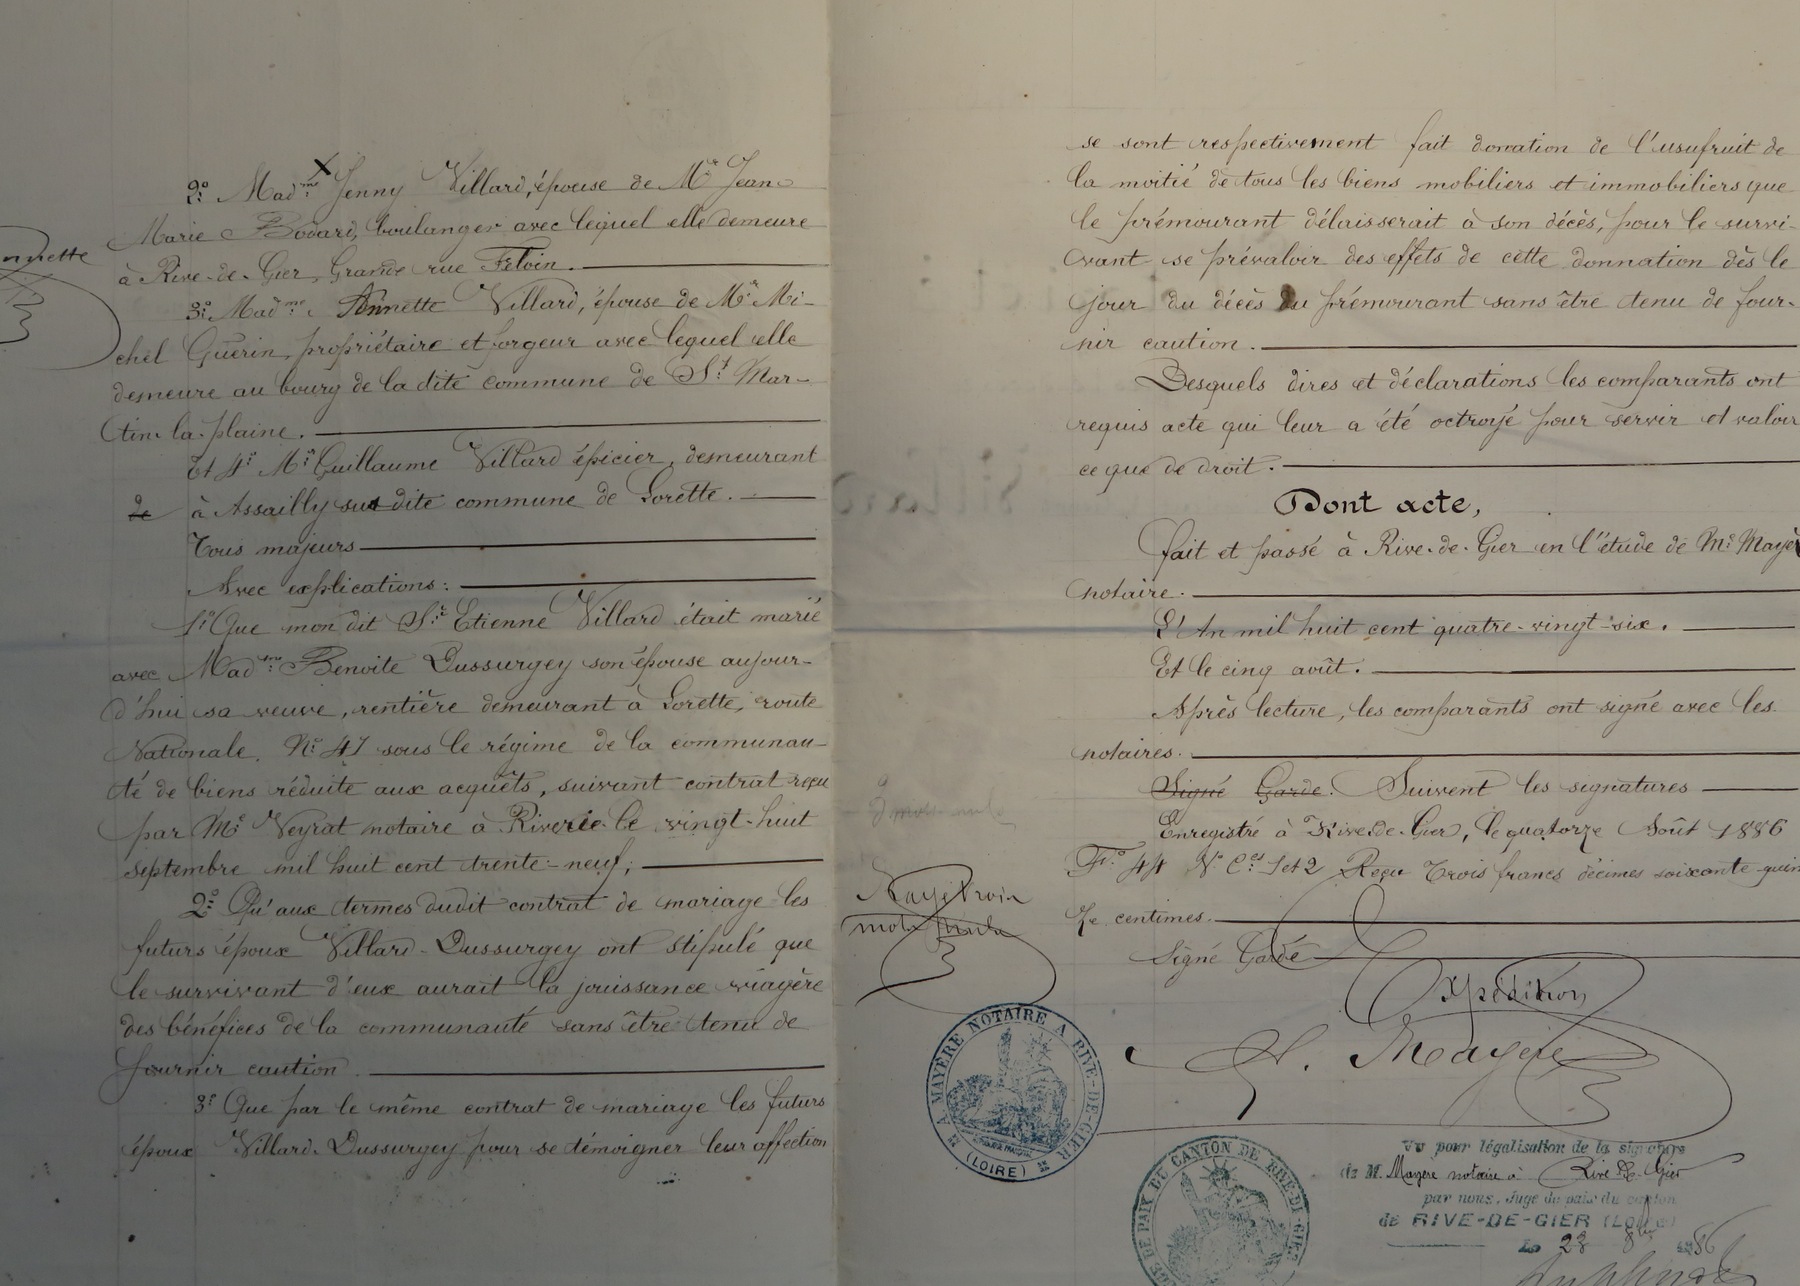 2º Mad.me Jenny Villard, épouse de Mr. Jean-
Marie Bodard, boulanger avec lequel elle demeure
à Rive-de-Gier, Grande rue Feloin.
3º Mad.me Annette Villard, épouse de Mr. Mi-
chel Guerin, propriétaire et forgeur avec lequel elle
demeure au bourg de la dite commune de St. Mar-
tin-la-plaine.
Et 4º Mr. Guillaume Villard épicier, demeurant
de à Assailly susdite commune de Lorette.
Tous majeurs
Avec explications:
1º Que mon dit Sr. Etienne Villard était marié
avec Mad.me Benoite Dussurgey son épouse aujour-
d'hui sa veuve, rentière demeurant à Lorette, route
Nationale, Nº 47 sous le régime de la communau-
té de biens réduite aux acquêts, suivant contrat reçu
par Me. Veyrat notaire à Riverie le vingt-huit
septembre mil huit cent trente-neuf;
2º Qu'aux termes dudit contrat de mariage les
futurs époux Villard-Dussurgey ont stipulé que
le survivant d'eux aurait la jouissance viagère
des bénéfices de la communauté sans être tenu de
fournir caution.
3º Que par le même contrat de mariage les futurs
époux Villard-Dussurgey pour se témoigner leur affection
se sont respectivement fait donation de l'usufruit de
la moitié de tous les biens mobiliers et immobiliers que
le prémourant délaisserait à son décès, pour le survi-
vant se prévaloir des effets de cette donnation dès le
jour du décès du prémourant sans être tenu de four-
nir caution.
Desquels dires et déclarations les comparants ont
requis acte qui leur a été octroyé pour servir et valoir
ce que de droit.
Dont acte,
fait et passé à Rive-de-Gier en l'étude de Me. Mayère
notaire.
L'An mil huit cent quatre-vingt-six.
Et le cinq août.
Après lecture, les comparants ont signé avec les
notaires.
Signé Garde. Suivent les signatures
Enregistré à Rive-de-Gier, le quatorze Août 1886
Fº 44 Nº Ces. 1 et 2 Reçu Trois francs décimes soixante-quin
ze centimes.
Signé Garde
Rayé trois
mots nuls
Expédition
A. Mayère
A MAYÈRE NOTAIRE A RIVE-DE-GIER
(LOIRE)
JUGE DE PAIX DU CANTON DE RIVE-DE-GIER
Vu pour légalisation de la signature
de M. Mayère notaire à Rive de Gier
par nous, Juge de paix du canton
de RIVE-DE-GIER (Loire)
Le 28 8bre 1886